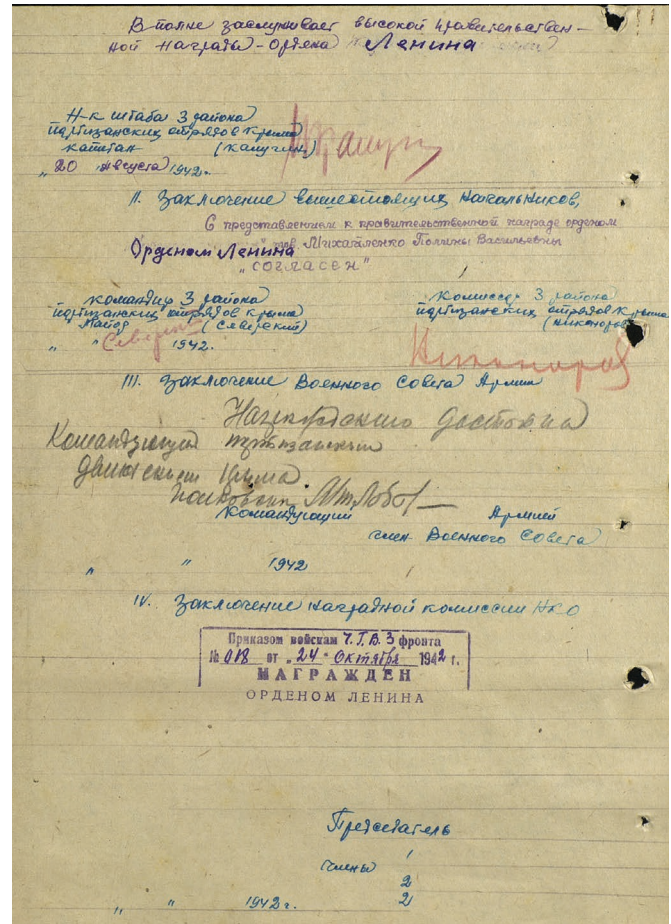 В полне заслуживает высокой правительствен-
ной награды - Ордена Ленина
Н-к штаба 3 района
партизанских отрядов Крыма
капитан (Калугин)
"20 августа 1942.
II. Заключение вышестоящих начальников,
С представлением к правительственной награде орденом
Орденом Ленина" тов. Михайленко Полины Васильевны
"согласен"
Командир 3 района Комиссар 3 района
партизанских отрядов Крыма партизанских отрядов Крыма
Майор (Северский) (Никаноров)
" " 1942.
Северский Никаноров
III. Заключение Военного Совета Армии
Награждения достойна
Командующий партизанским
движением Крыма
полковник М Лобов
Командующий Армией
член Военного Совета
" " 1942
IV. Заключение наградной комиссии НКО
Приказом войскам Ч.Г.В. 3 фронта
№ 018 от "24" Октября 1942 г.
НАГРАЖДЕН
ОРДЕНОМ ЛЕНИНА
Председатель
члены 1
2
2
" " 1942 г.